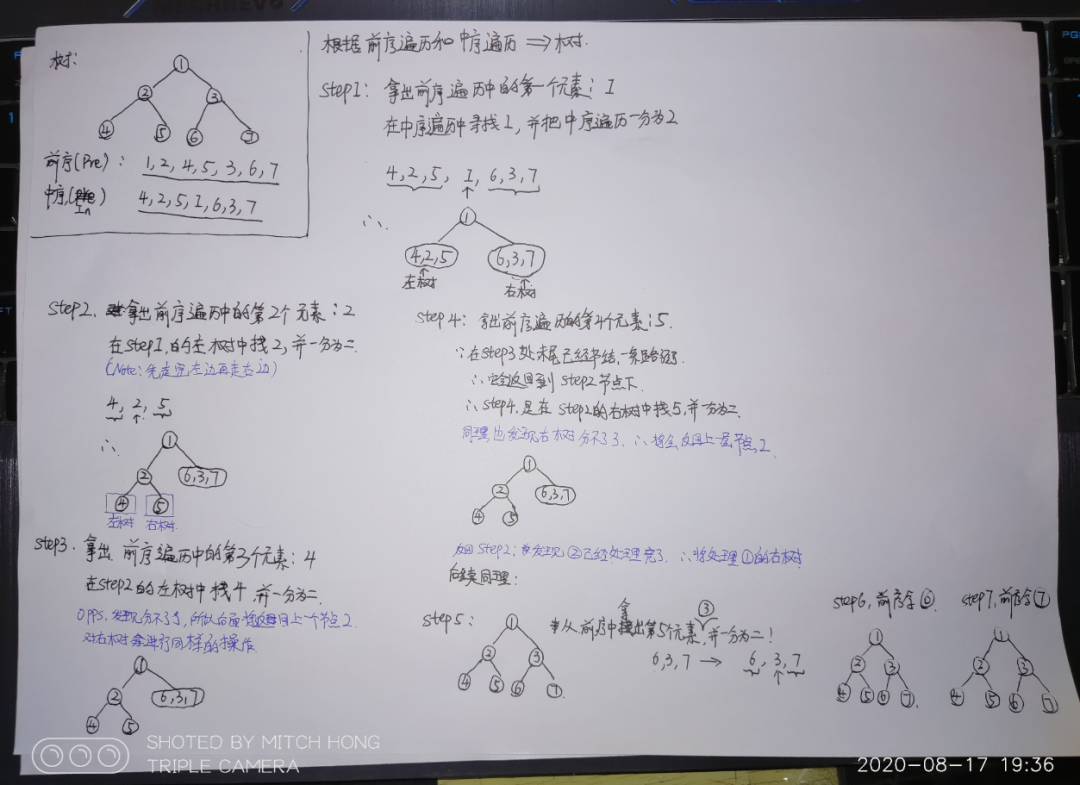 树:
1
2 3
4 5 6 7
前序(Pre): 1,2,4,5,3,6,7
中序(In) 4,2,5,1,6,3,7
根据前序遍历和中序遍历 ⟹树.
Step1: 拿出前序遍历中的第一个元素: 1
在中序遍历中寻找1, 并把中序遍历一分为2
4,2,5, 1, 6,3,7
↑
∴
1
4,2,5 6,3,7
左树 右树
Step2. 拿出前序遍历中的第2个元素: 2
在Step1.的左树中找2, 并一分为二.
(Note: 先走完左边再走右边)
4, 2, 5
↑
∴
1
2 6,3,7
4 5
左树 右树
Step3. 拿出 前序遍历中的第3个元素: 4
在step2的左树中找4, 并一分为二.
Opps, 发现分不了了, 所以后面返回上一个节点2
对右树进行同样的操作
1
2 6,3,7
4 5
Step4: 拿出前序遍历的第4个元素: 5.
∵在Step3处末尾已经
∴会返回到 Step2 节点下.
∴Step4. 是在 Step2的右树中找5, 并一分为二.
同理, 也发现右树分不了了, ∴将会返回上一层节点2
1
2 6,3,7
4 5
返回Step2: 发现②已经处理完了, ∴将处理①的右树
后续同理:
Step5: 从前序中拿出第5个元素③, 并一分为二!
6,3,7 → 6, 3, 7
↑
1
2 3
4 5 6 7
Step6, 前序拿⑥
1
2 3
4 5 6 7
Step7, 前序拿⑦
1
2 3
4 5 6 7
SHOTED BY MITCH HONG
TRIPLE CAMERA
2020-08-17 19:36